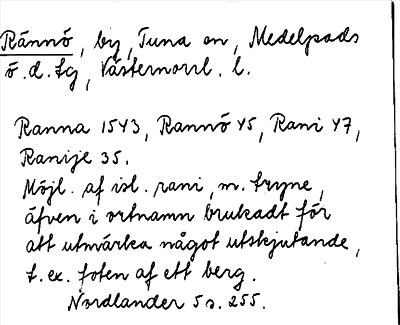 Rännö, by, Tuna sn, Medelpads
ö. d. tg, Västernorrl. l.
Ranna 1543, Rannö 45, Rani 47,
Ranije 35.
Möjl. af isl. rani, m. tryne,
äfven i ortnamn brukadt för
att utmärka något utskjutande,
t. ex. foten af ett berg.
Nordlander 5 s. 255.